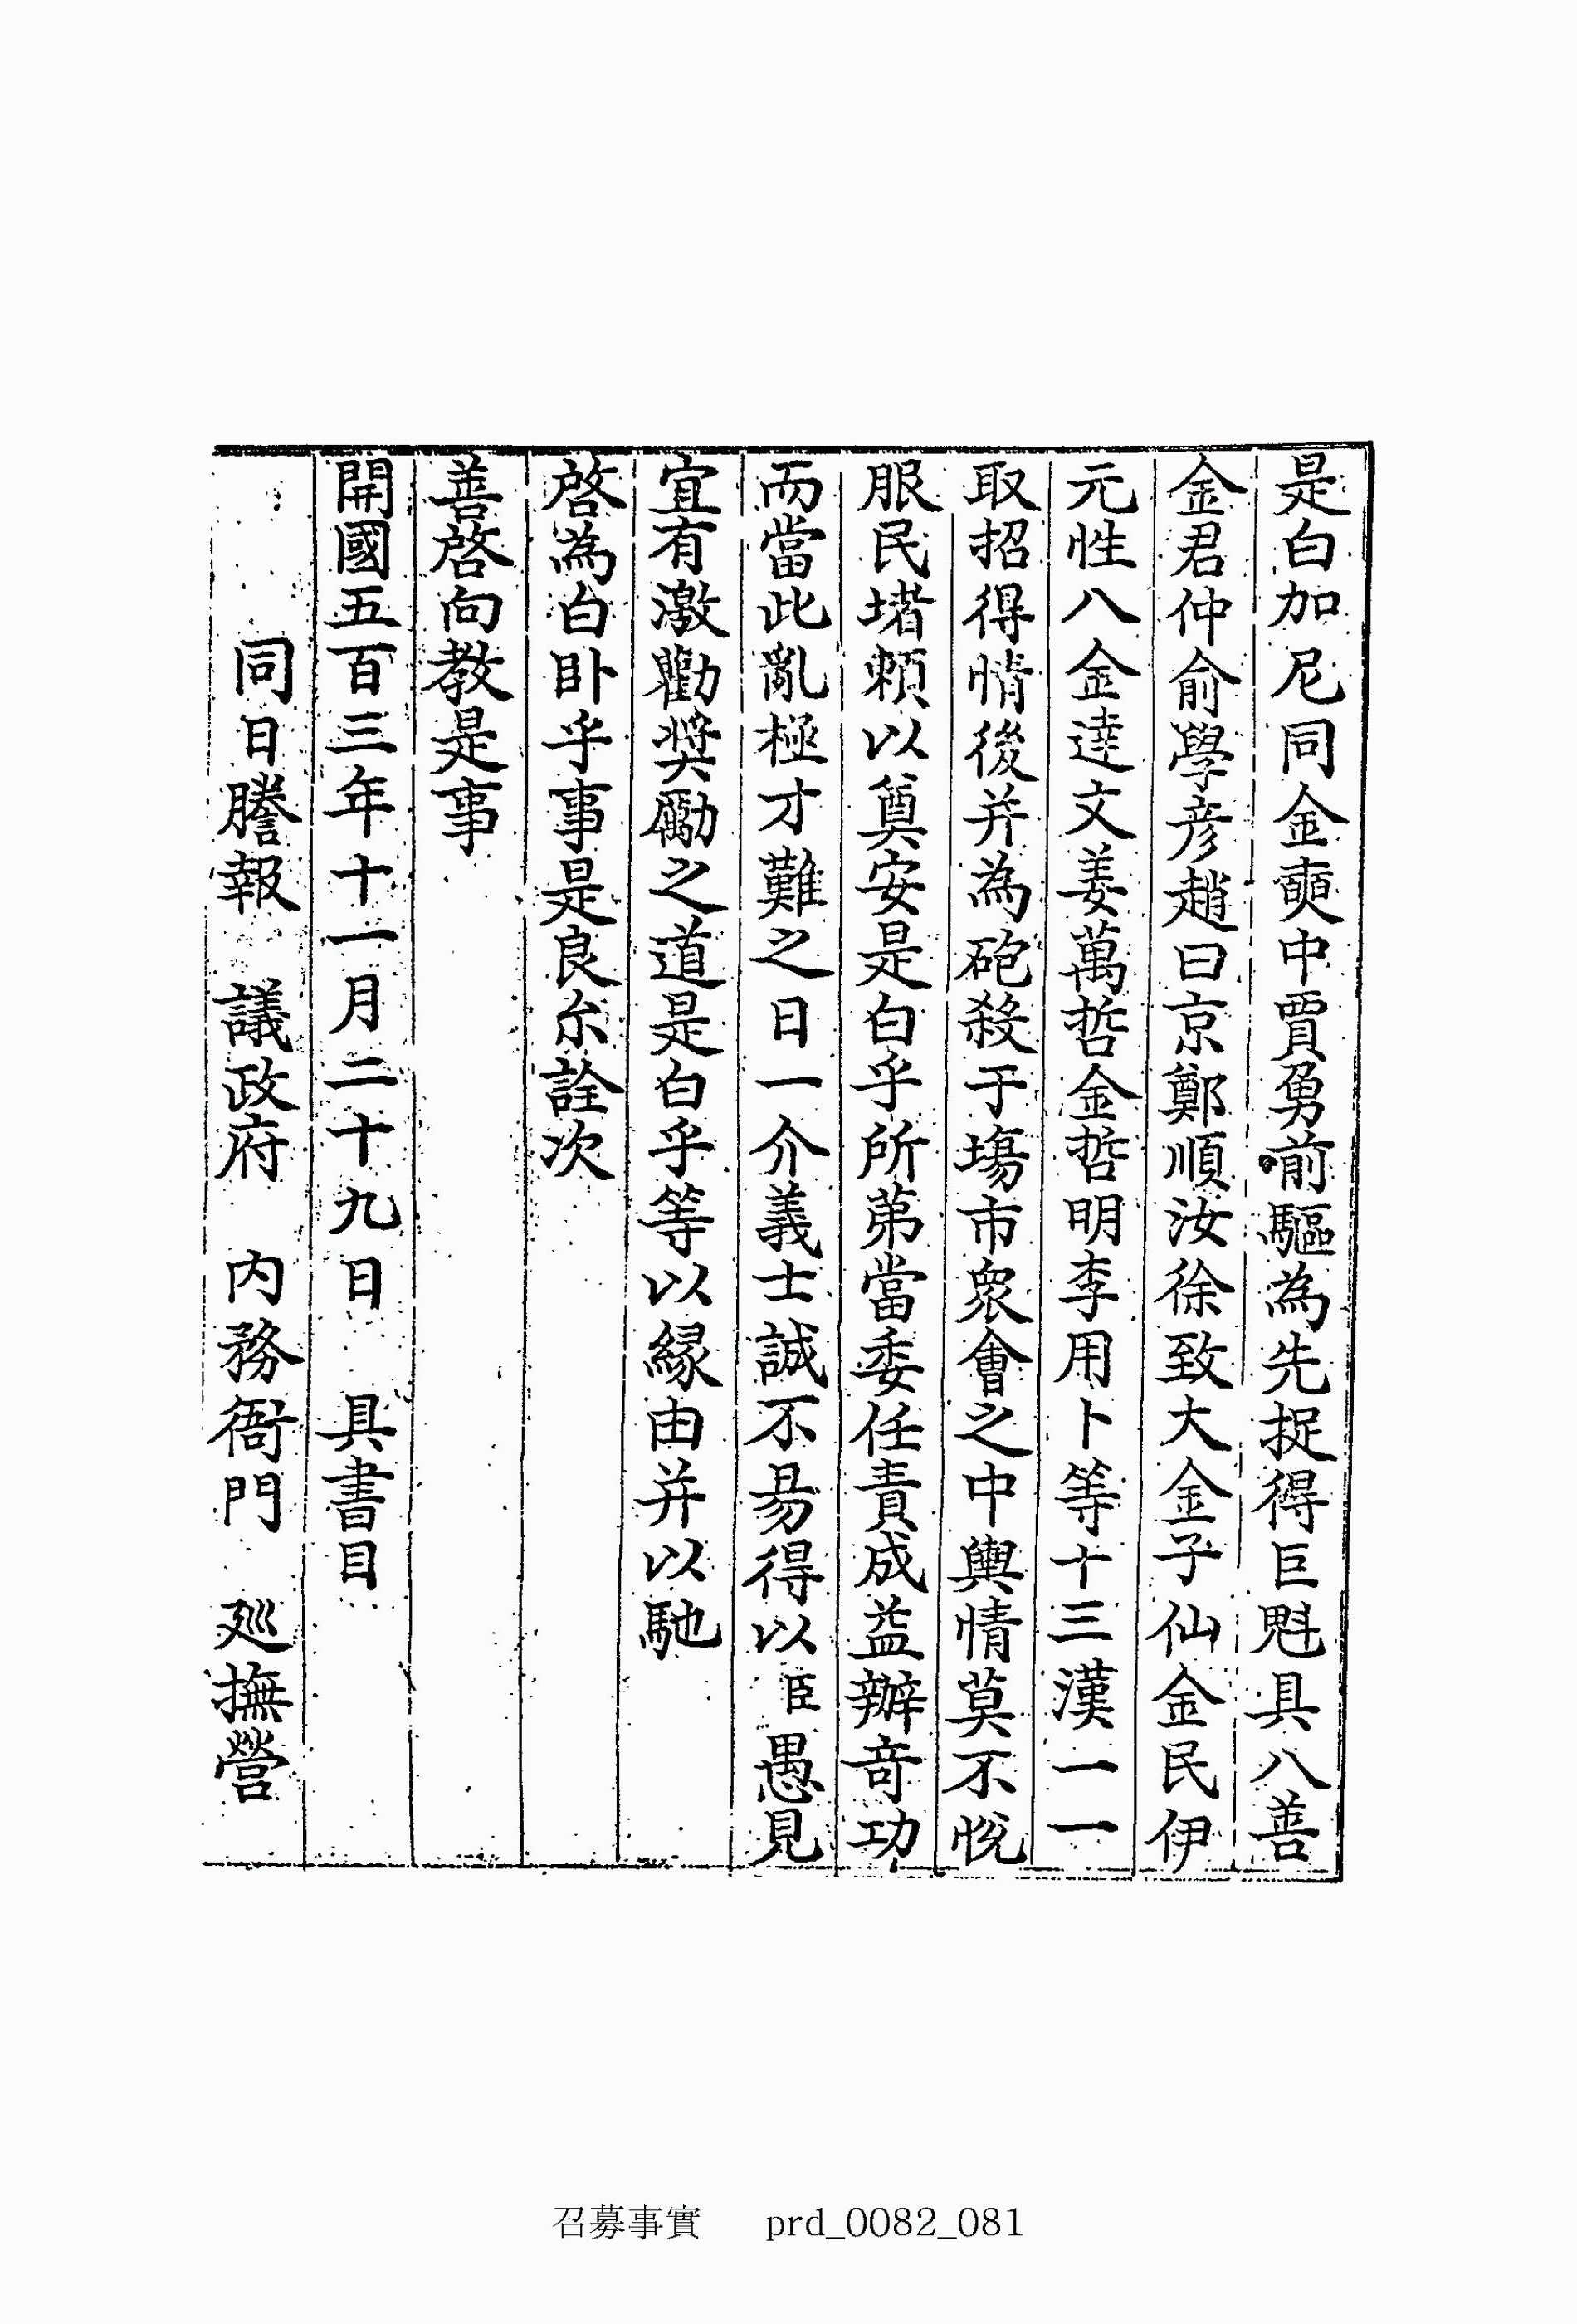 是白加尼同金奭中賈勇前驅為先捉得巨魁具八善
金君仲俞學彦趙曰京鄭順汝徐致大金子仙金民伊
元性八金達文姜萬哲金哲明李用卜等十三漢一一
取招得情後并為砲殺于塲市衆會之中輿情莫不悅
服民堵頼以奠安是白乎所苐當委任責成益辦竒功
而當此亂極才難之日一介義士誠不易得以臣愚見
宜有激勸奬勵之道是白乎等以緣由并以馳
啓為白卧乎事是良尒詮次
善啓向教是事
開國五百三年十一月二十九日 具書目
同日謄報 議政府 内務衙門 廵撫營
召募事實 prd_0082_081